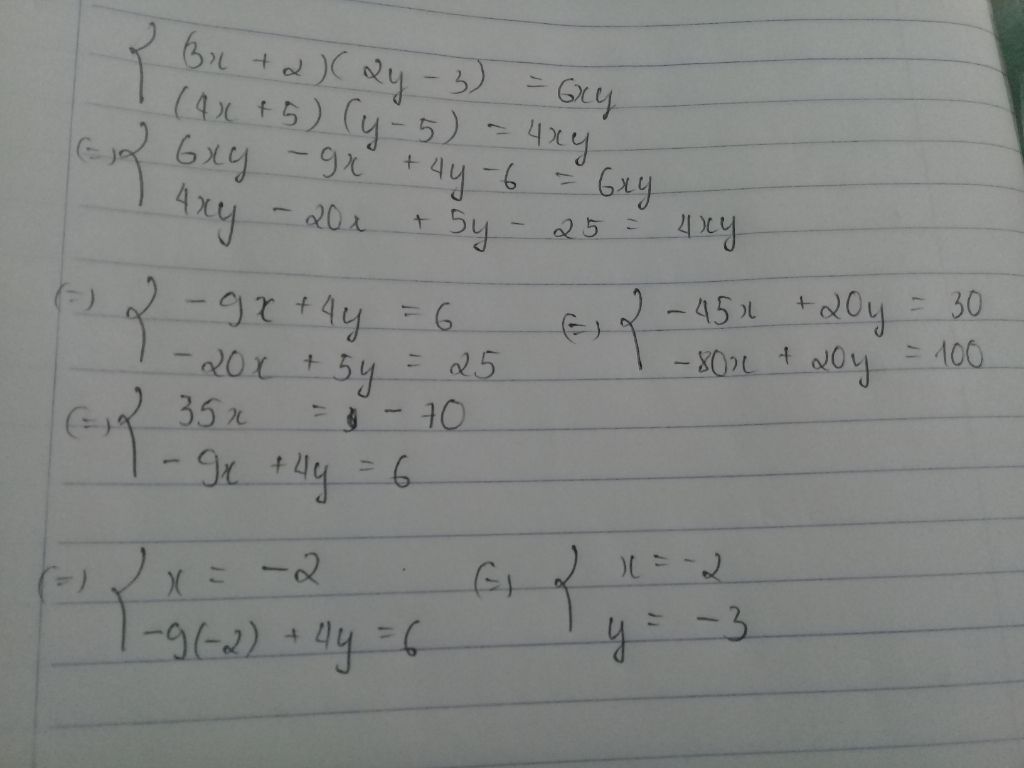 { (3x + 2)(2y - 3) = 6xy
(4x + 5)(y - 5) = 4xy
(=) { 6xy - 9x + 4y - 6 = 6xy
4xy - 20x + 5y - 25 = 4xy
(=) { -9x + 4y = 6 (=) { -45x + 20y = 30
-20x + 5y = 25 -80x + 20y = 100
(=) { 35x = -70
-9x + 4y = 6
(=) { x = -2 (=) { x = -2
-9(-2) + 4y = 6 y = -3